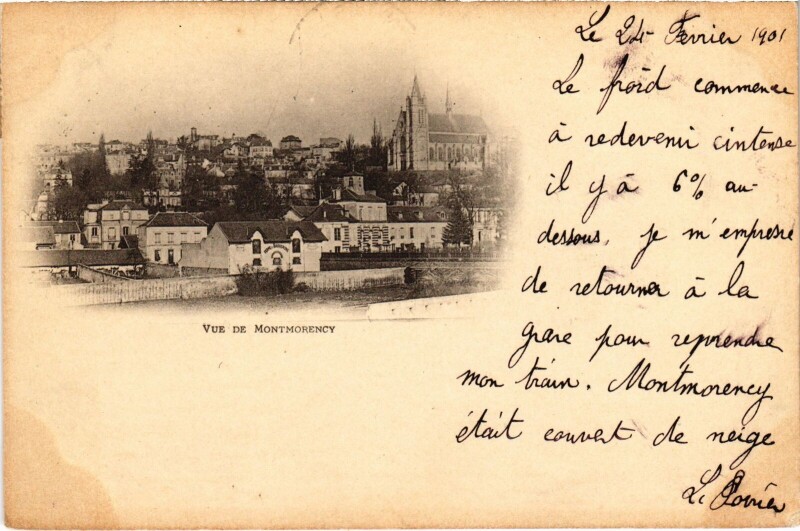 Le 24 Fevrier 1901
Le froid commence
à redevenir intense
il y à 6% au-
dessous, je m'empresse
de retourner à la
gare pour reprendre
mon train. Montmorency
était couvert de neige
L.
VUE DE MONTMORENCY